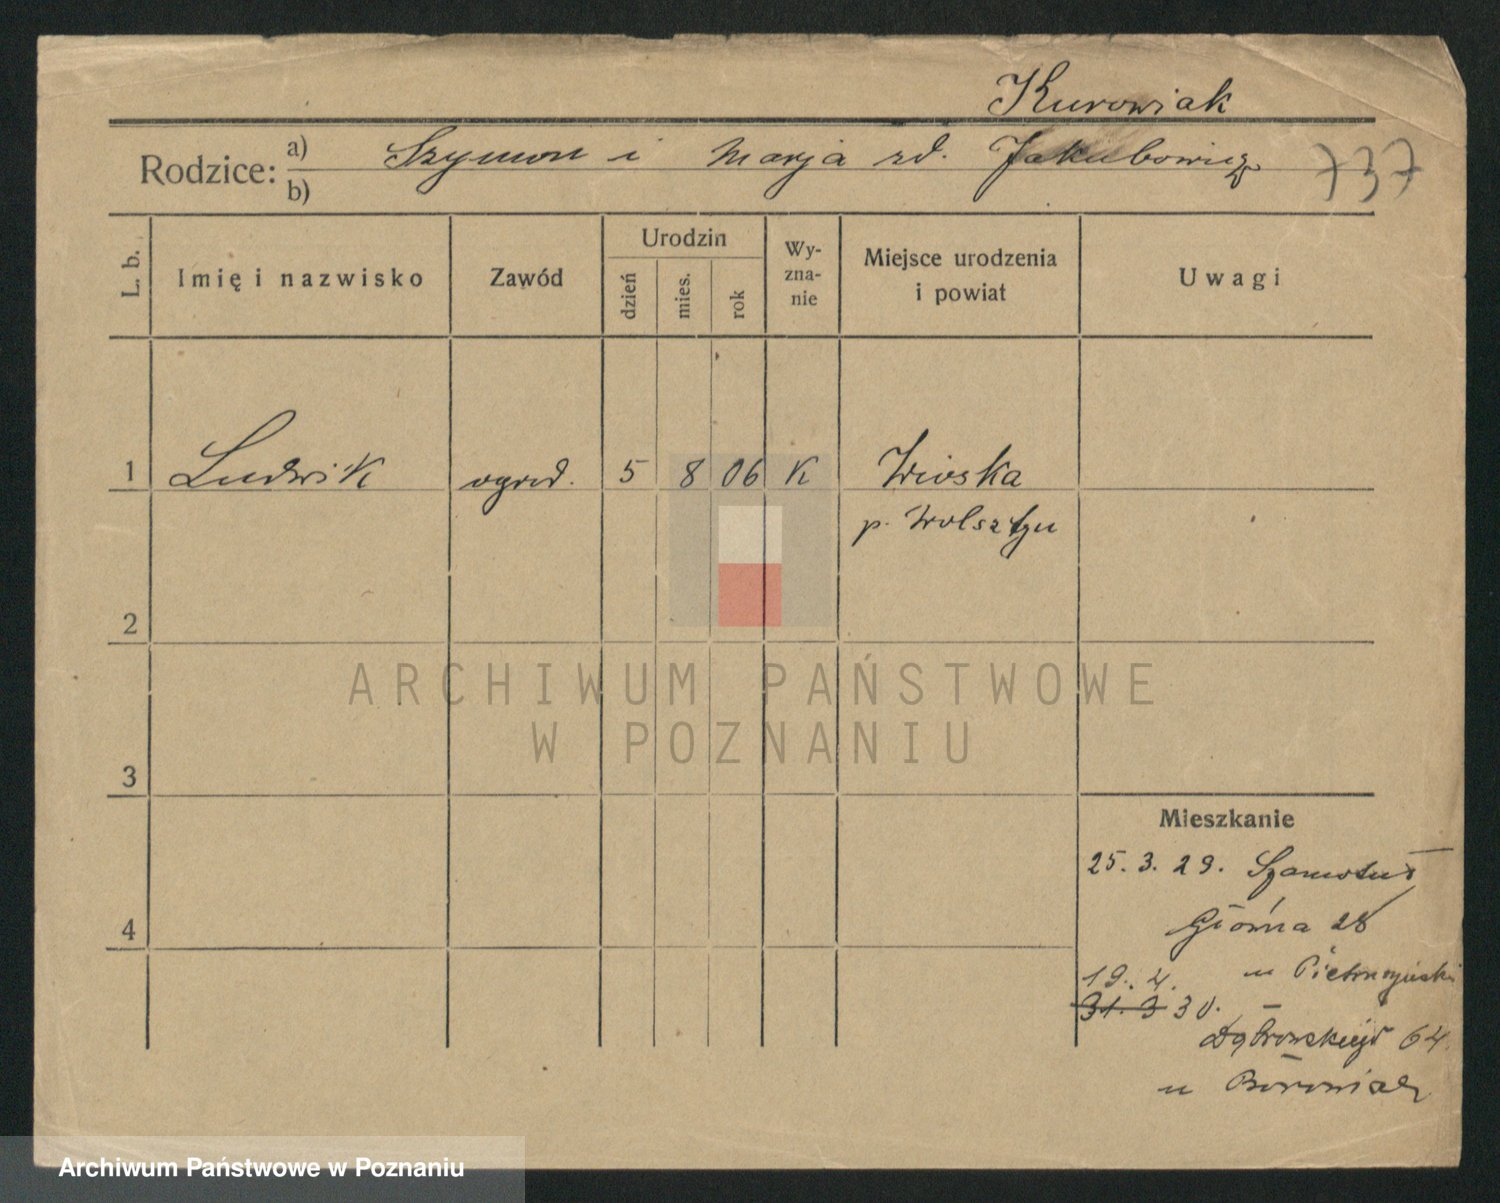 Kurowiak
Rodzice: a) b) Szymon i Marja zd. Jakubowicz 737
L. b. Imię i nazwisko Zawód Urodzin dzień mies. rok Wy-zna-nie Miejsce urodzenia i powiat Uwagi
1 Ludwik ogrod. 5 8 06 K Wioska
p. Wolsztyn
2
ARCHIWUM PAŃSTWOWE
W POZNANIU
3
Mieszkanie
25. 3. 29. Szamotuł
4
Głowna 28
19. 4. u
31. 3 30.
Dąbrowskiego 64
u Borowiak
Archiwum Państwowe w Poznaniu